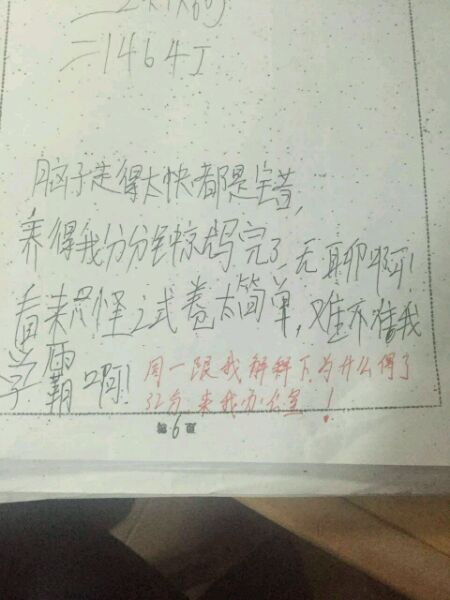 =1464J
脑子走得太快都是错,
弄得我分分钟就写完了,无聊啊!
看来只怪试卷太简单,难不住我
学霸啊!
周一跟我解释下为什么得了
32分,来我办公室!
第6页